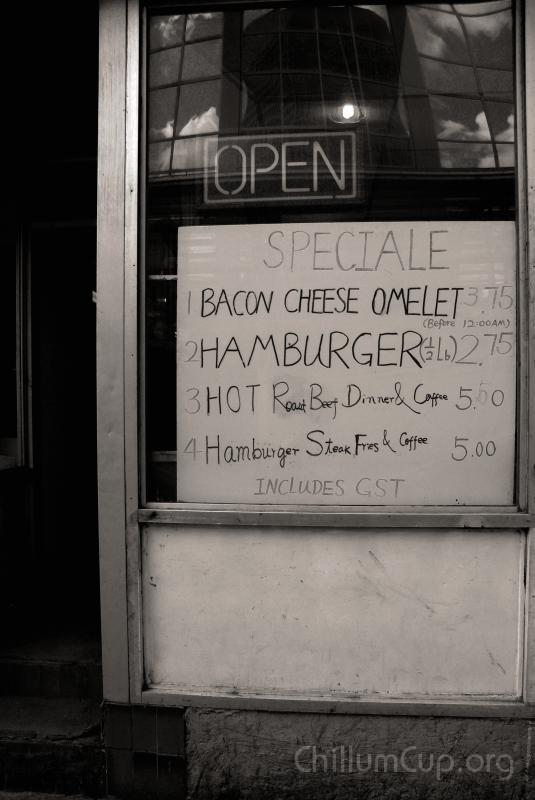 OPEN
SPECIALE
1 BACON CHEESE OMELET 3.75
(Before 12:00AM)
2 HAMBURGER (1/2 Lb) 2.75
3 HOT Roast Beef Dinner & Coffee 5.50
4 Hamburger Steak Fries & Coffee 5.00
INCLUDES GST
ChillumCup.org